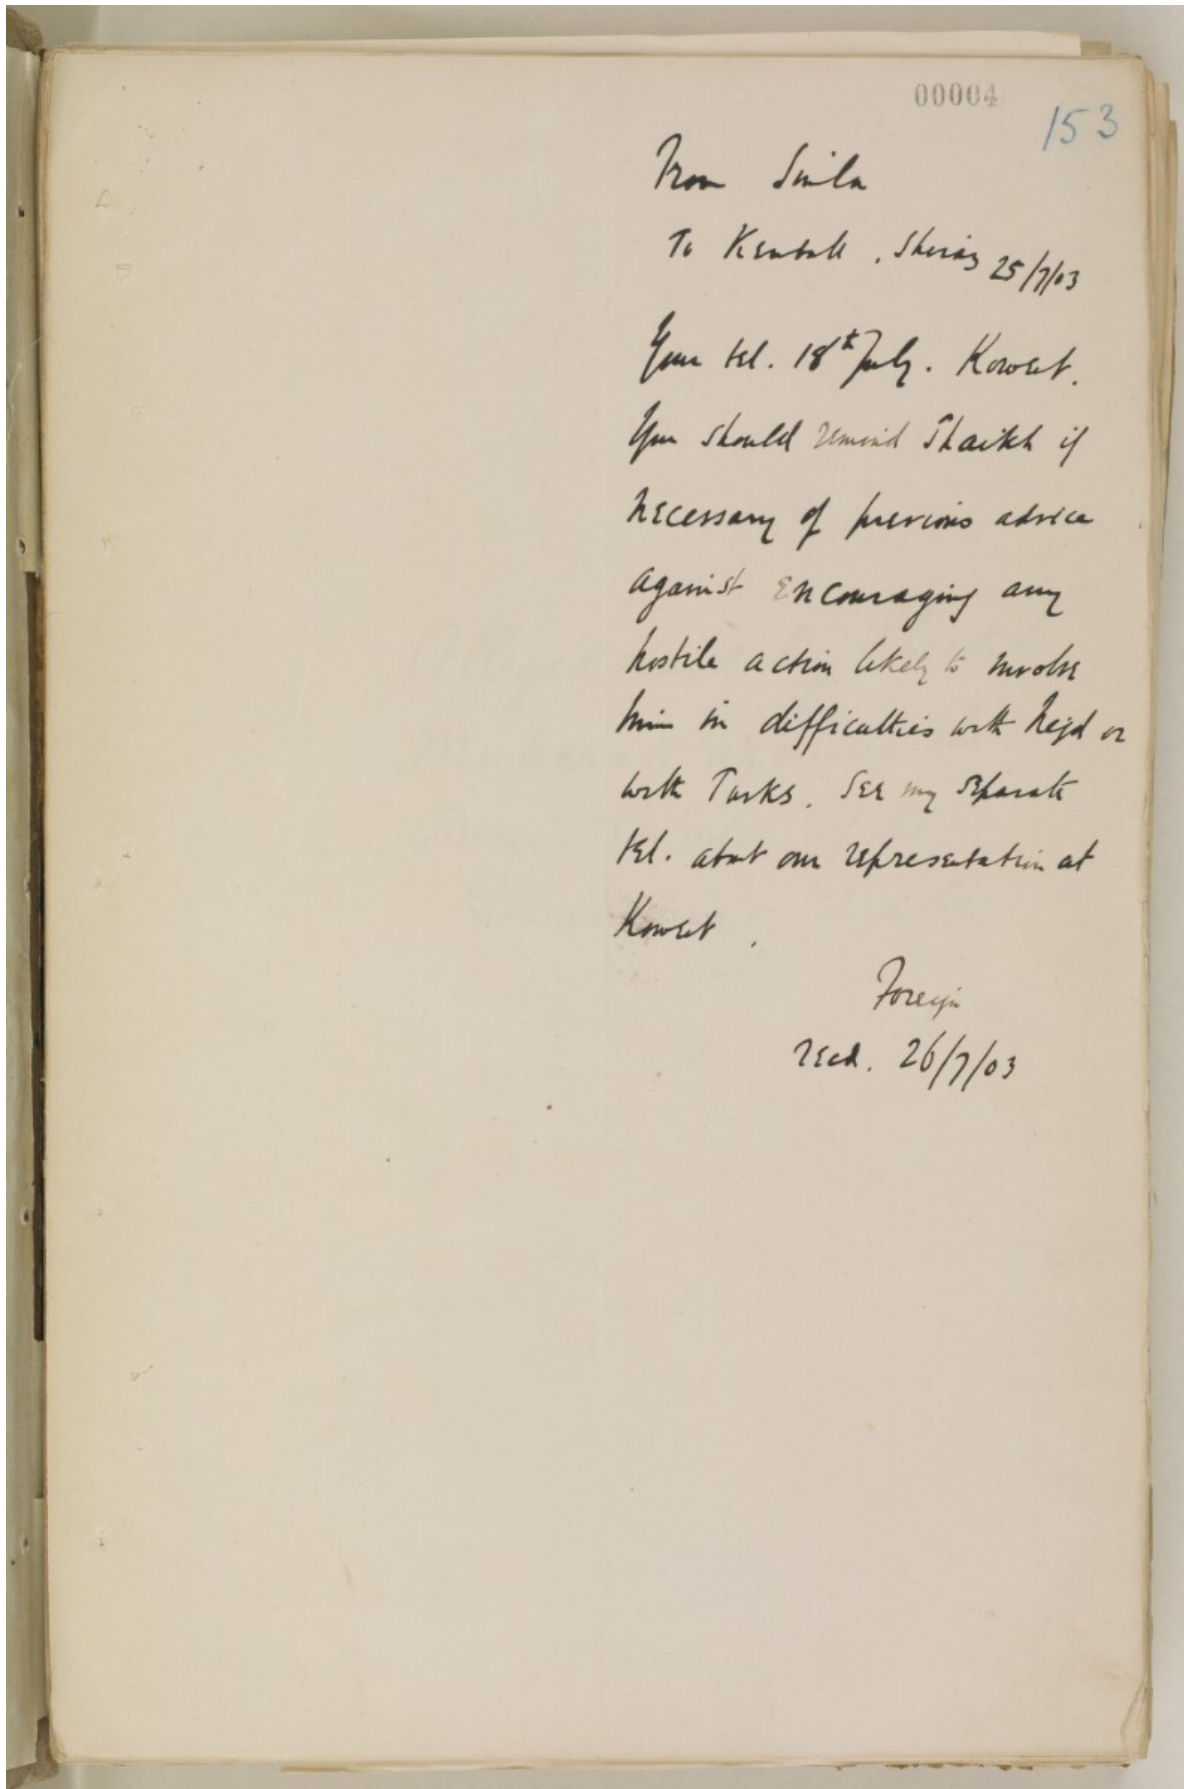 00004
153
From Simla
To Kemball, Shiraz 25/7/03
Your tel. 18th July. Koweit.
You should remind Shaikh if
necessary of previous advice
against encouraging any
hostile action likely to involve
him in difficulties with Nejd or
with Turks. See my separate
tel. about our representation at
Koweit.
Foreign
recd. 26/7/03